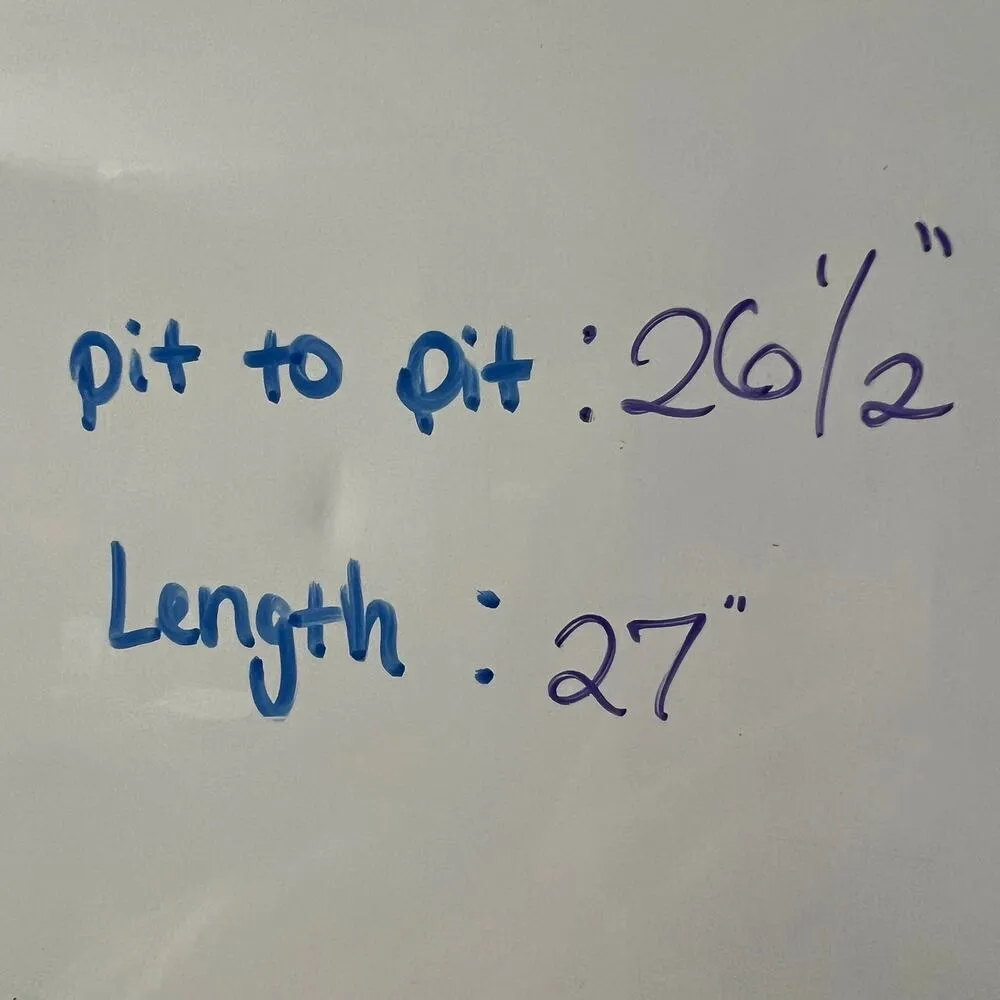 pit to pit : 26 1/2"
Length : 27"